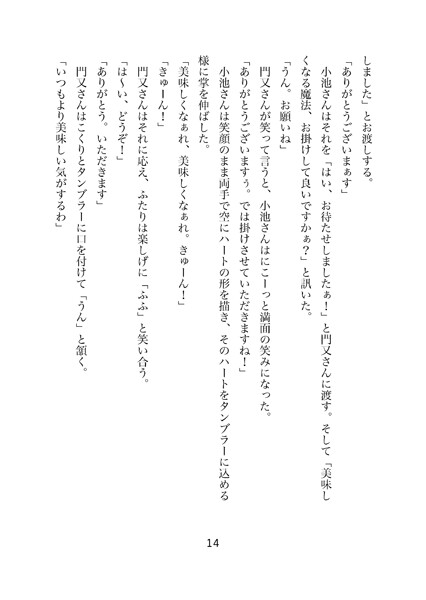 しました」とお渡しする。
「ありがとうございまぁす」
　小池さんはそれを「はい、お待たせしましたぁ！」と門又さんに渡す。そして「美味し
くなる魔法、お掛けして良いですかぁ？」と訊いた。
「うん。お願いね」
　門又さんが笑って言うと、小池さんはにこーっと満面の笑みになった。
「ありがとうございますぅ。では掛けさせていただきますね！」
　小池さんは笑顔のまま両手で空にハートの形を描き、そのハートをタンブラーに込める
様に掌を伸ばした。
「美味しくなぁれ、美味しくなぁれ。きゅーん！」
「きゅーん！」
　門又さんはそれに応え、ふたりは楽しげに「ふふ」と笑い合う。
「は〜い、どうぞ！」
「ありがとう。いただきます」
　門又さんはこくりとタンブラーに口を付けて「うん」と頷く。
「いつもより美味しい気がするわ」
14